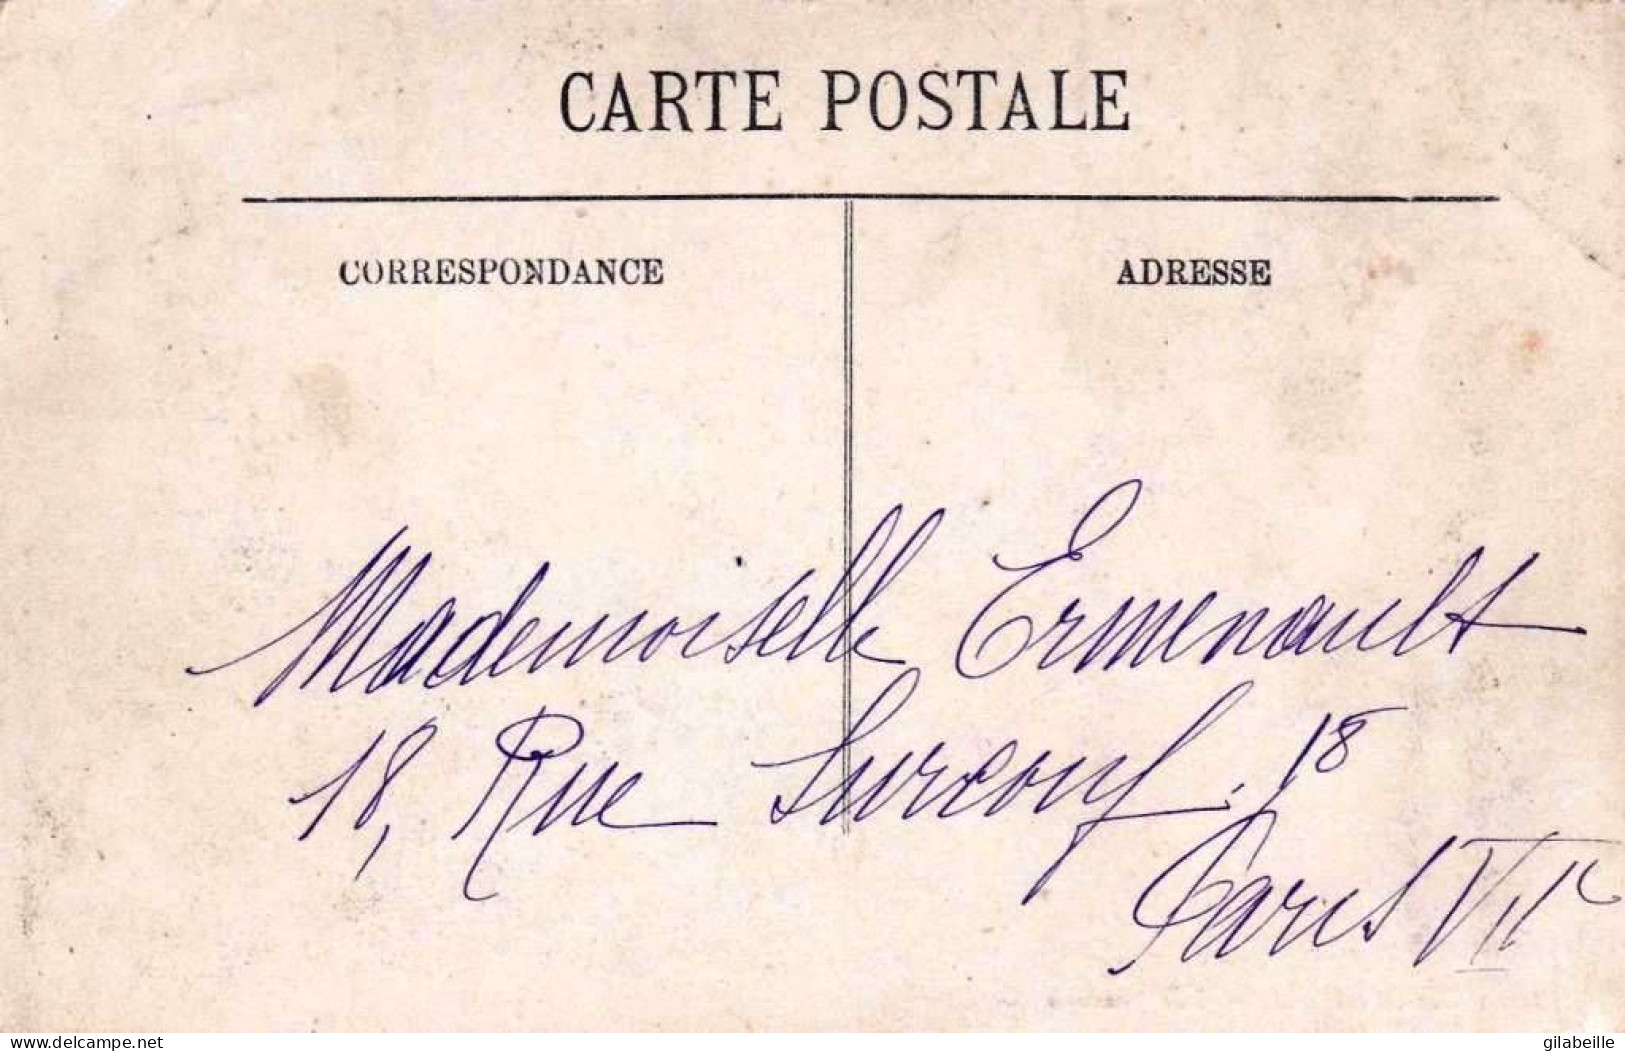 CARTE POSTALE
CORRESPONDANCE
ADRESSE
Mademoiselle Ermenault
18, Rue Surcouf. 18
Paris VIIe
delcampe.net
gilabeille